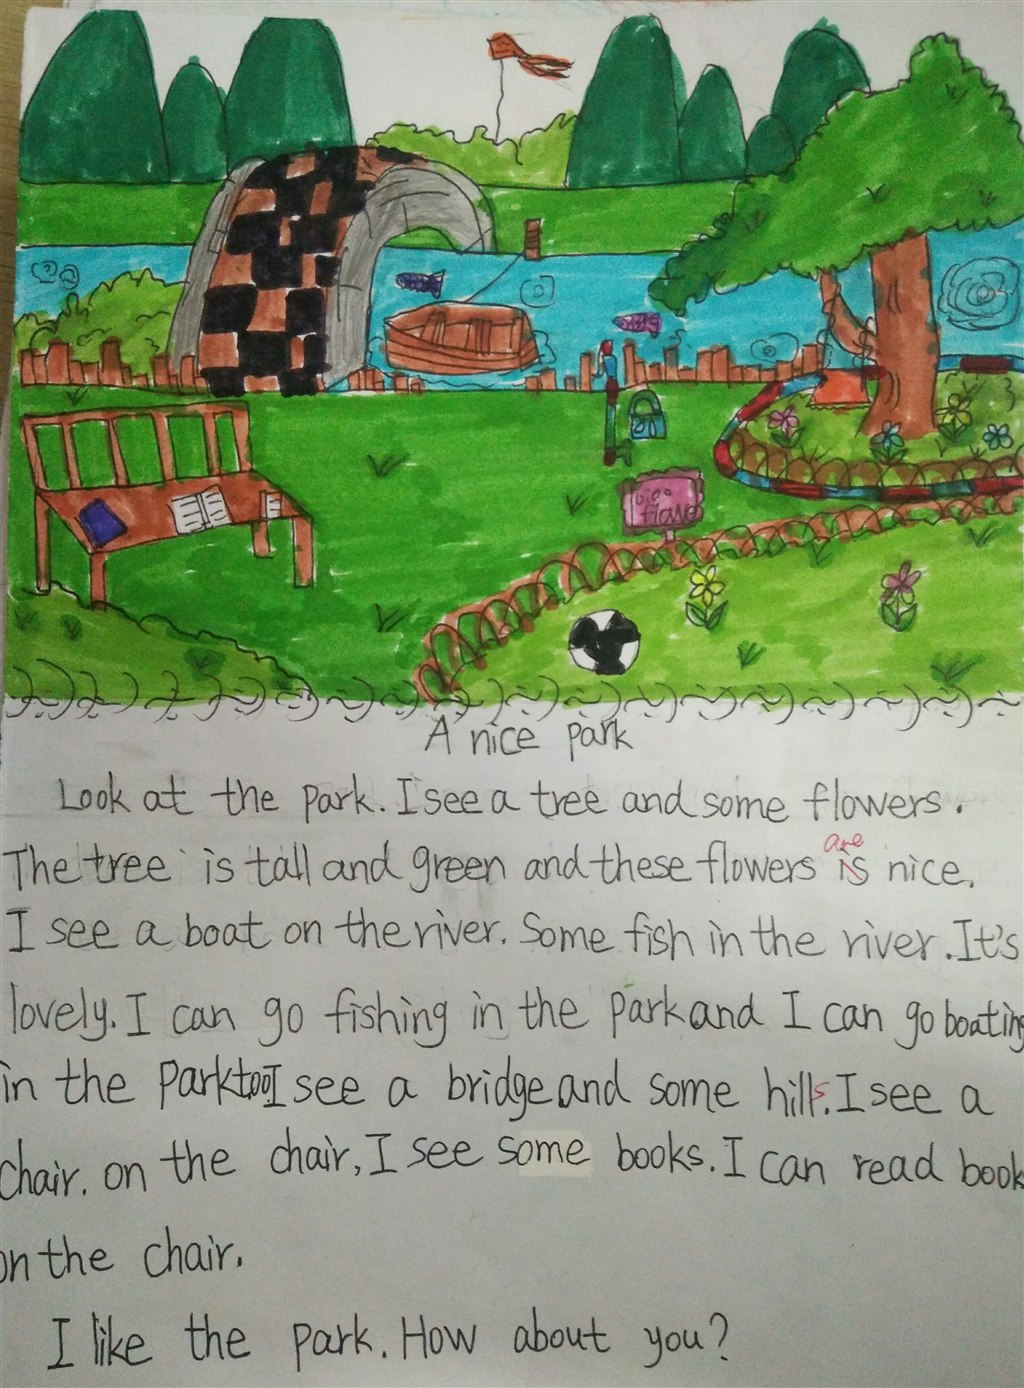 flowe
A nice park
Look at the park. I see a tree and some flowers.
are
The tree is tall and green and these flowers is nice.
I see a boat on the river. Some fish in the river. It's
lovely. I can go fishing in the park and I can go boating
in the park too I see a bridge and some hills. I see a
chair. on the chair, I see some books. I can read book
on the chair.
I like the park. How about you?